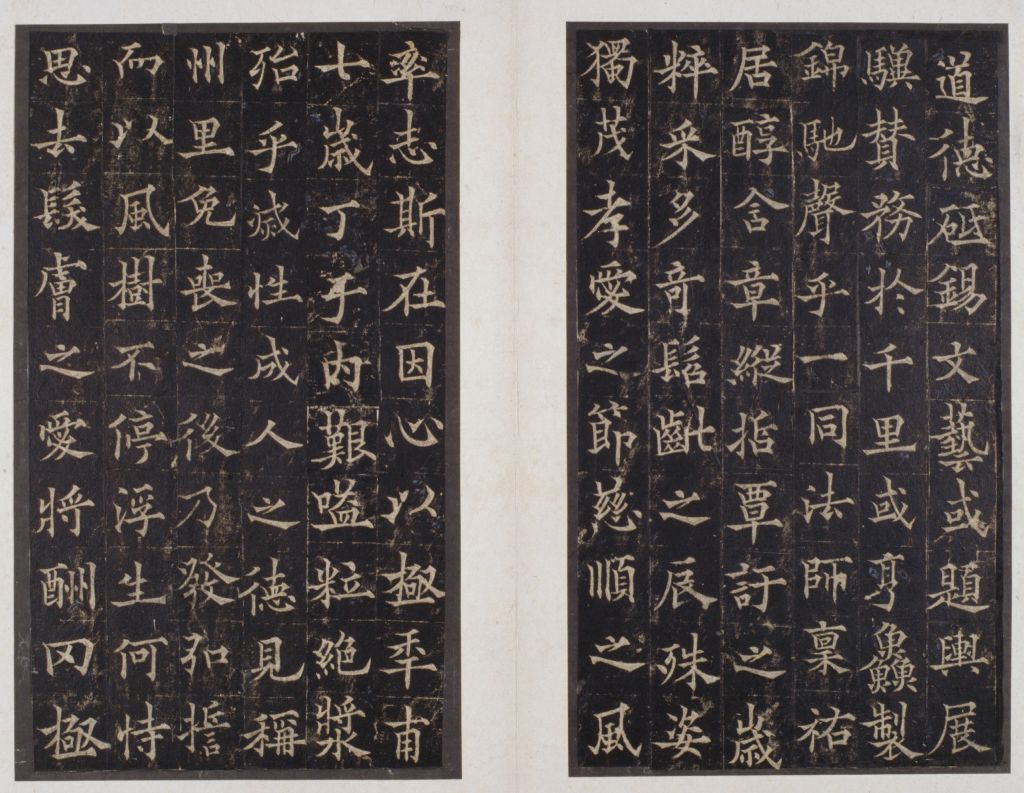 道德砥錫文藝或題輿展
驥贊務於千里或亨鱻製
錦馳聲乎一同法師稟祐
居醇含章縱指覃訏之歲
粹采多奇髫齔之辰殊姿
獨茂孝愛之節慈順之風
率志斯在因心以極年甫
七歲丁于內艱嗌粒絕漿
殆乎滅性成人之德見稱
州里免喪之後乃發弘誓
而以風樹不停浮生何恃
思去髮膚之愛將酬罔極